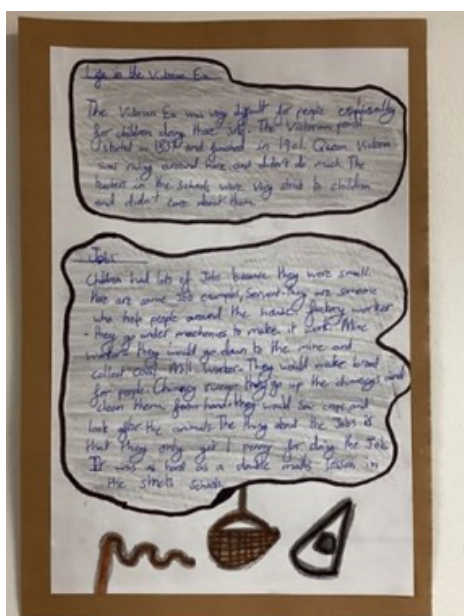 Life in the Victorian Era
The Victorian Era was very difficult for people espicially
for children doing there job. The Victorian period
started in 1837 and finished in 1901. Queen Victoria
was ruling around here and didn't do much. The
teachers in the schools were very strict to children
and didn't care about them.
Jobs
Children had lots of Jobs because they were small.
Here are some Job examples, Servant-They are someone
who help people around the house, factory worker
-they go under machenes to make it work. Mine
workers they would go down to the mine and
collect coal. Mill worker- They would make bread
for people. Chimney sweeper they go up the chimneys and
clean them, farm hand-they would sow crops and
look after the animals. The thing about the Jobs is
that they only get 1 penny for doing the Job.
It was as hard as a double maths lesson in
the stricts school.